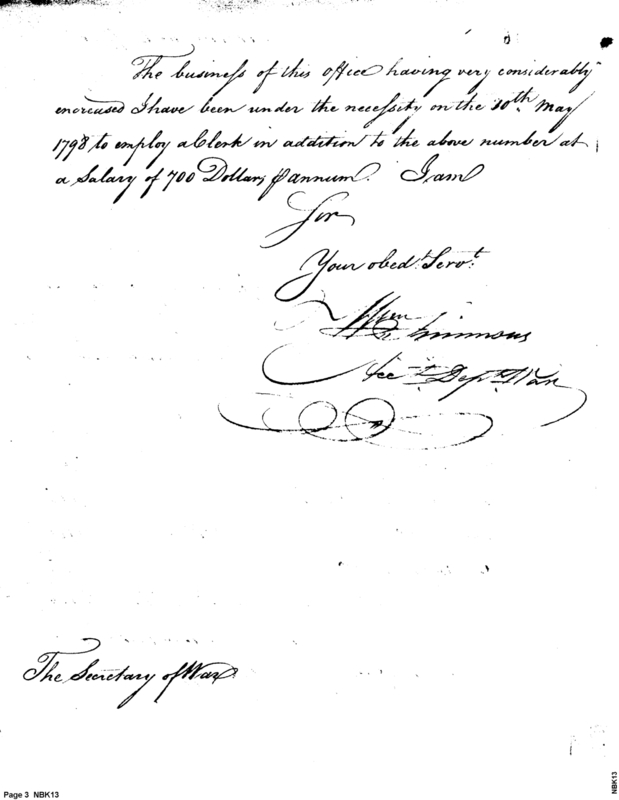 The business of this office having very considerably
encreased I have been under the necessity on the 10th May
1798 to employ a Clerk in addition to the above number at
a Salary of 700 Dollars ⅌ annum. I am
Sir
Your obed.t Serv.t
Wm Simmons
Acc.t Dep.t War
The Secretary of War.
Page 3 NBK13
NBK13